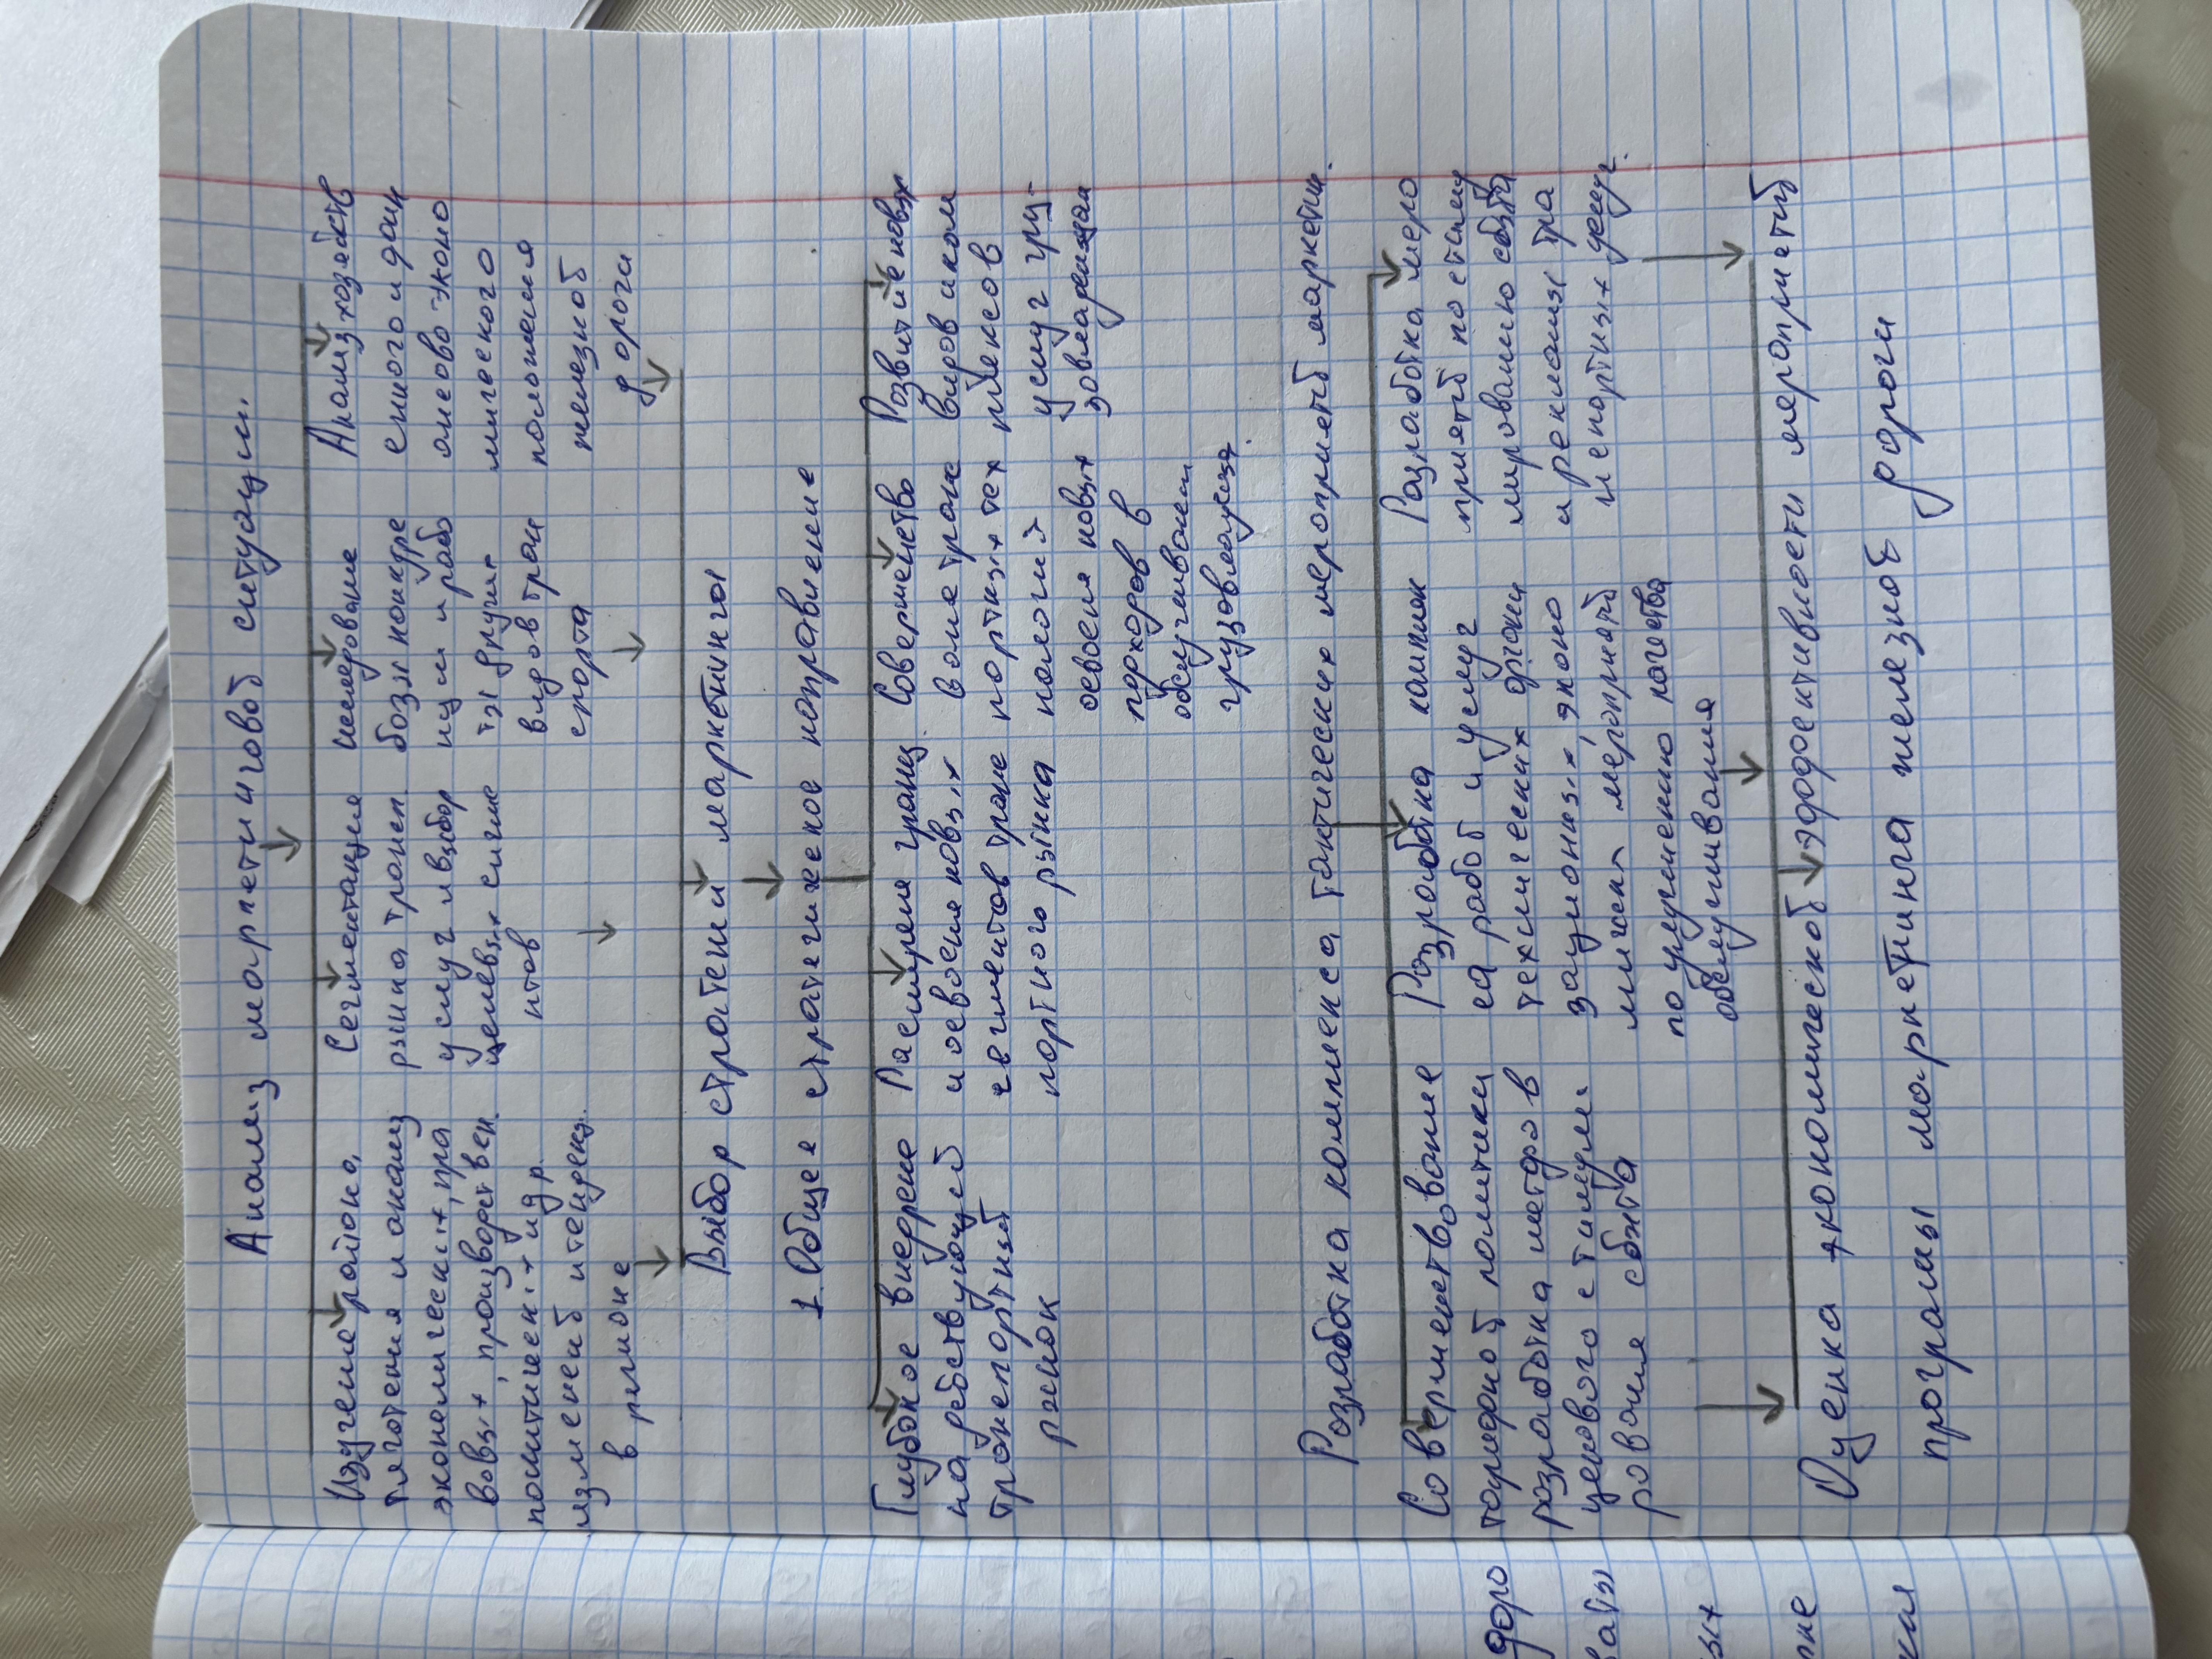 Анализ маркетинговой ситуации.
Изучение района
тяготения и анализ
экономических, пра
вовых, производствен
политическ-х и др.
изменений и тенденц.
в регионе
Сегментация
рынка трансп.
услуг и выбор
целевых сегме
нтов
бозы конкуре
нции и рабо
ты других
видов тран
спорта
Анализ хозяйств
енного и фин
ансово-эконо
мического
положения
железной
дороги
Выбор стратегий маркетинга
1. Общее стратегическое направление
Глубокое внедрение
на действующей
транспортный
рынок
Расширение границ
и освоение новых
сегментов транс
портного рынка
Совершенство
вание транс
портных тех
нологий
освоения новых
подходов в
обслуживании
грузовладельца.
Развитие новых
видов и ком
плексов
услуг гру-
зовладельцам
Разработка комплекса тактических мероприятий маркетин.
Совершенствование
тарифной политики
разработка методов
ценового стимули
рования сбыта
Разработка комплек
са работ и услуг
технических органи
зационных, эконо
мическ. мероприятий
по улучшению качества
обслуживания
Разработка меро
приятий по стиму
лированию сбыта
и рекламы тра
нспортных услуг.
Оценка экономической эффективности мероприятий
програмы маркетинга железной дороги
доро